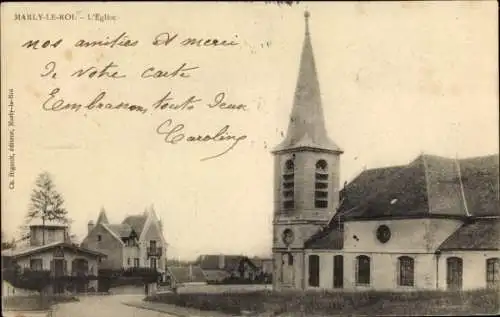 MARLY-LE-ROI. - L'Église
nos amitiés et merci
de votre carte
Embrassons toute deux
Caroline
Ch. Rigault, éditeur, Marly-le-Roi